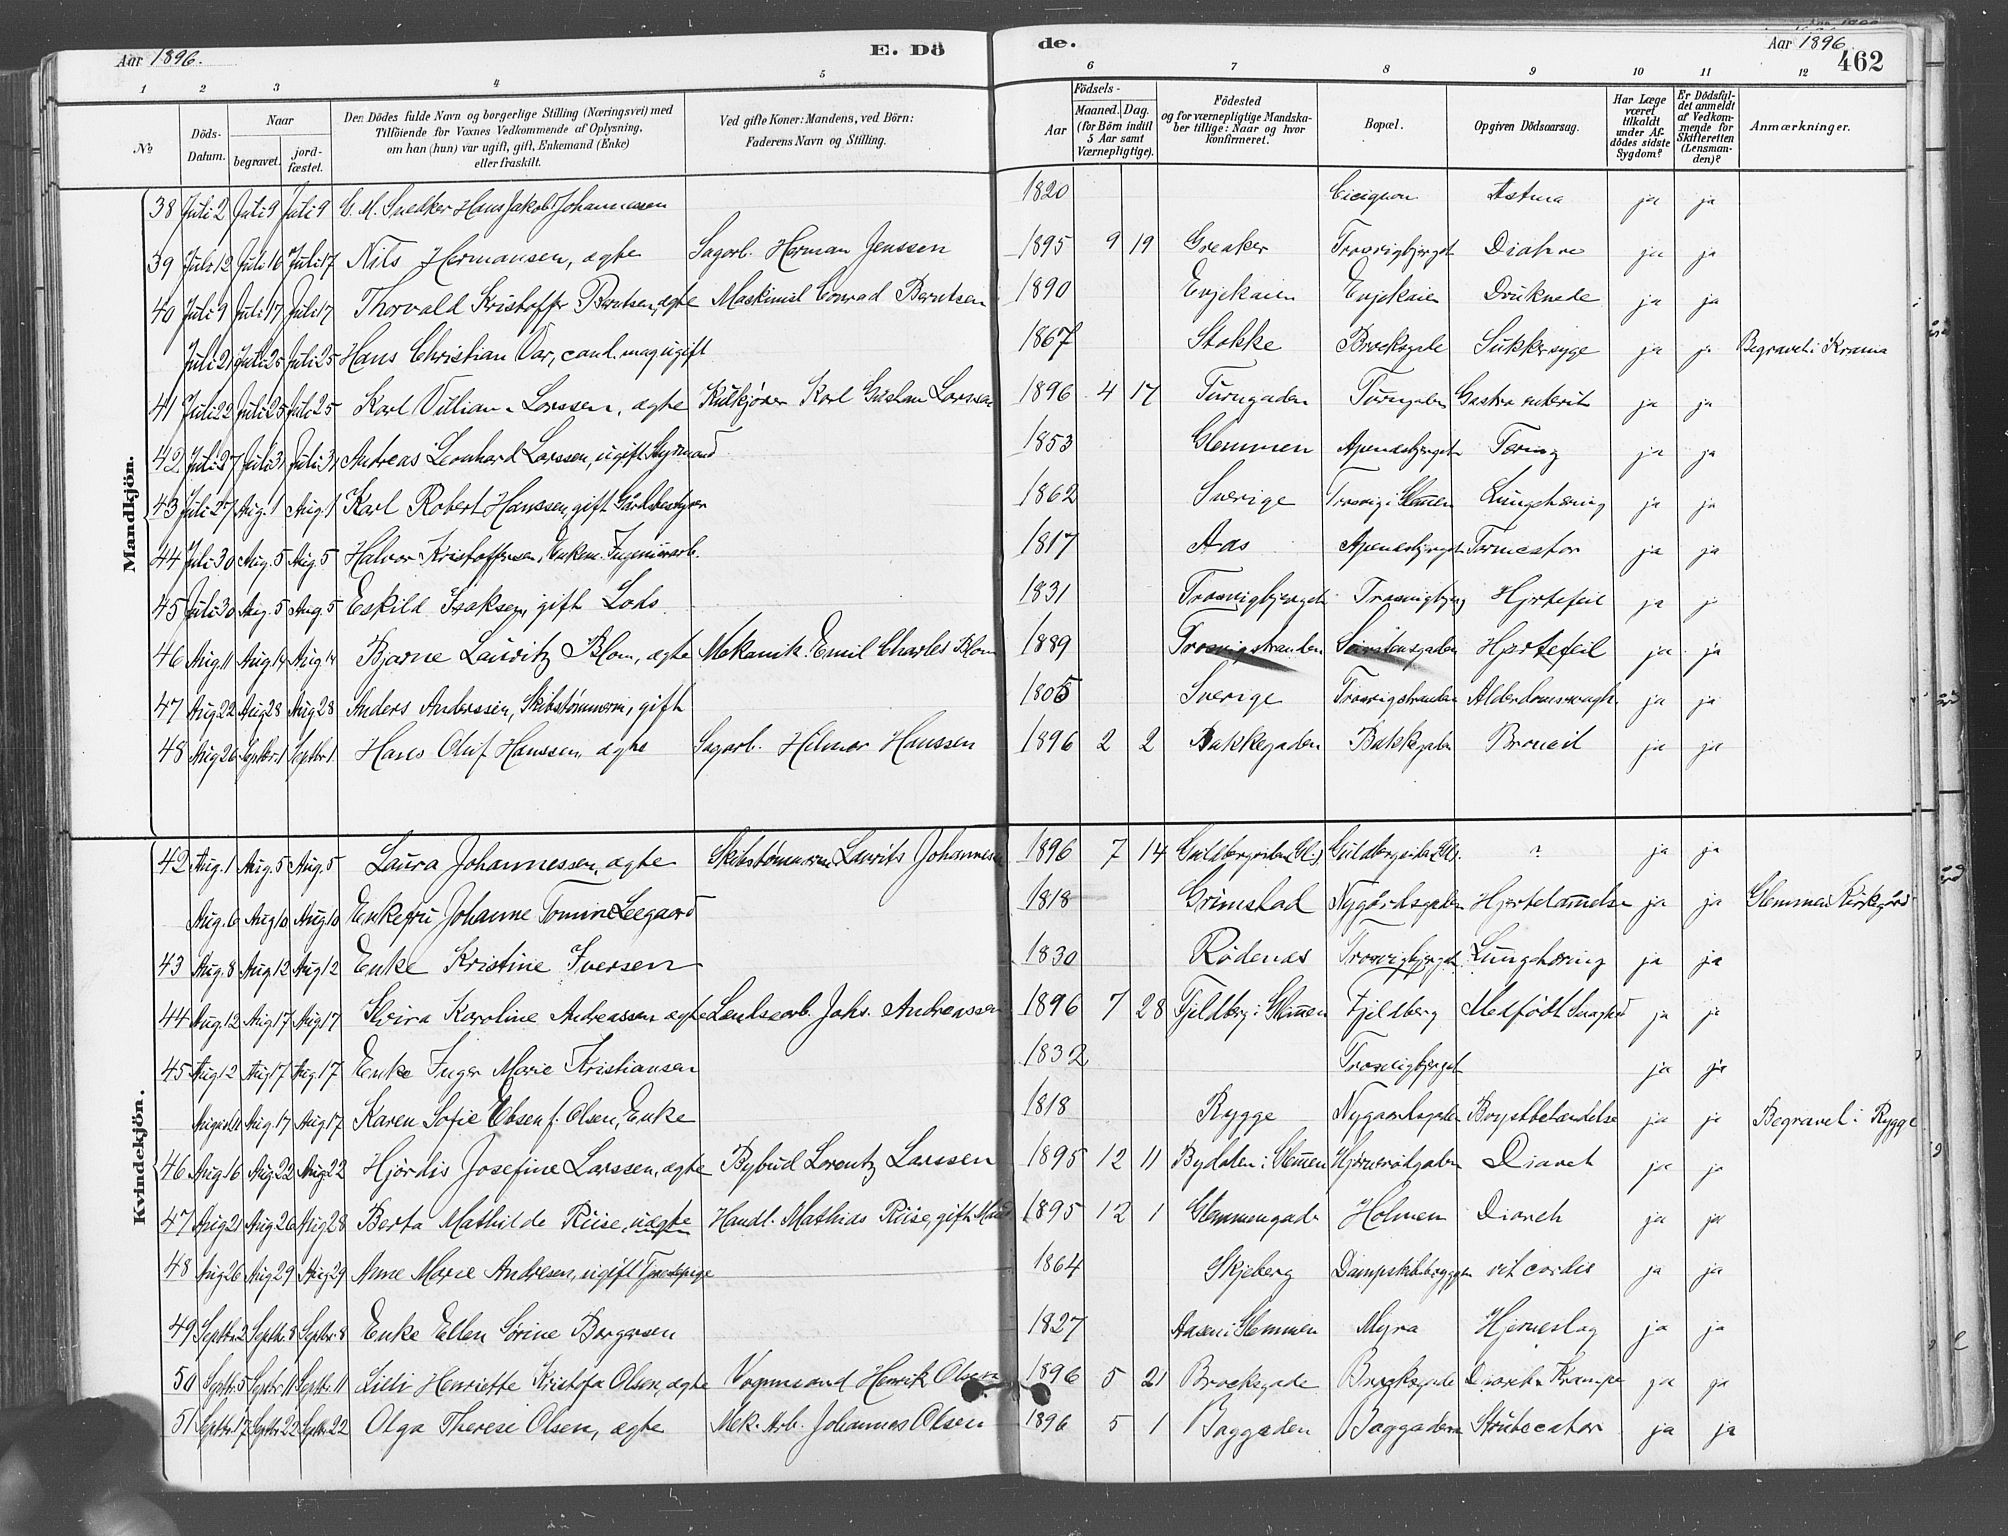 Aar 1896.
E. Dö
de.
Aar 1896
462
1 2 3 4 5 6 7 8 9 10 11 12
No
Döds-Datum.
Naar begravet. jordfæstet.
Den Dödes fulde Navn og borgerlige Stilling (Næringsvei) med Tilföiende for Voxnes Vedkommende af Oplysning, om han (hun) var ugift, gift, Enkemand (Enke) eller fraskilt.
Ved gifte Koner: Mandens, ved Börn: Faderens Navn og Stilling.
Födsels- Aar Maaned. Dag. (for Börn indtil 5 Aar samt Værnepligtige).
Födested og for værnepligtige Mandskaber tillige: Naar og hvor konfirmeret.
Bopæl.
Opgiven Dödsaarsag.
Har Læge været tilkaldt under Afdödes sidste Sygdom?
Er Dödsfaldet anmeldt af Vedkommende for Skifteretten (Lensmanden)?
Anmærkninger.
Mandkjön.
38 Juli 2 Juli 9 Juli 9 G. M. Snedker Hans Jakob Johannessen 1820 Cicignon Astma ja ja
39 Juli 12 Juli 16 Juli 17 Nils Hermansen, ægte Sagarb. Herman Jenssen 1895 9 19 Greaker Trosvigbjerget ja ja
40 Juli 9 Juli 17 Juli 17 Thorvald Kristoffer Berntsen, ægte Maskinist Conrad Berntsen 1890 Evjekaien Evjekaien Druknede ja ja
Juli 21 Juli 25 Juli 25 Hans Christian Var, cand. mag. ugift 1867 Stokke Brocksgade Sukkersyge ja ja Begravet i Krania
41 Juli 22 Juli 25 Juli 25 Karl Villian Larssen, ægte Karl Gustav Larssen 1896 4 17 Turngaden Turngaden Gastro enterit ja ja
42 Juli 27 Juli 31 Juli 31 Andreas Leonhard Larssen, ugift Styrmand 1853 Glemmen Apenesbjerget Tæring ja ja
43 Juli 27 Aug. 1 Aug. 1 Karl Robert Hanssen, gift Gårdsbestyrer 1862 Sverige Trosvig i Glemmen Lungetæring ja ja
44 Juli 30 Aug. 5 Aug. 5 Halvor Kristoffersen, Enkem. Ingeniørarb. 1817 Aas Apenesbjerget ja ja
45 Juli 30 Aug. 5 Aug. 5 Eskild Isaksen, gift Lods 1831 Trosvigbjerget Trosvigbjerg Hjertefeil ja ja
46 Aug. 11 Aug. 14 Aug. 14 Bjarne Lauritz Blom, ægte Mekanik. Emil Charles Blom 1889 Trosvigstranden Hjertefeil ja ja
47 Aug. 22 Aug. 28 Aug. 28 Anders Anderssen, Skibstømmerm, gift 1805 Sverige Trosvigstranden Alderdomssvagh. ja ja
48 Aug 26 Septbr. 1 Septbr. 1 Hans Oluf Hanssen, ægte Sagarb. Hilmar Hanssen 1896 2 2 Bakkegaden Bakkegaden ja ja
Kvindekjön.
42 Aug. 1 Aug. 5 Aug. 5 Laura Johannessen, ægte Skibstømmerm. Laurits Johannessen 1896 7 14 Guldbergsiden (Gl.) Guldbergsiden (Gl). ? ja ja
Aug. 6 Aug 10 Aug. 10 Enkefru Johanne Tomine Leegaard 1818 Grimstad Nygårdsgaden Hjertelamelse ja ja Glemmen Kirkegård
43 Aug. 8 Aug. 12 Aug. 12 Enke Kristine Iversen 1830 Rødenæs Trosvigbjerget Lungetæring ja ja
44 Aug. 12 Aug 17 Aug 17 Karoline Andreassen, ægte Johs. Andreassen 1896 7 28 Fjeldberg i Glemmen Fjeldberg Medfødt Svaghed ja ja
45 Aug 12 Aug 17 Aug. 17 Enke Inger Marie Kristiansen 1832 Trosvigbjerget ja ja
Aug. 17 Aug. 17 Karen Sofie Ebsen f. Olsen, Enke 1818 Rygge Nygaardsgaden Brystbetændelse ja ja Begravet i Rygge
46 Aug 16 Aug. 22 Aug. 22 Hjördis Josefine Larssen, ægte Bybud Lorentz Larssen 1895 12 11 Bydalen i Glemmen Diareh ja ja
47 Aug 21 Aug 26 Aug. 28 Berta Mathilde Riise, uægte Handl. Mathias Riise, gift Mand 1895 12 1 Glemmengade Holmen Diareh ja ja
48 Aug 26 Aug 29 Aug 29 Anne Marie Andresen, ugift Tjenestepige 1864 Skjeberg Dampskibsbryggen vit. cordis ja ja
49 Septbr. 2 Septbr. 8 Septbr. 8 Enke Ellen Sörine Borgersen 1827 Aasen i Glemmen Myra Hjerneslag ja ja
50 Septbr. 5 Septbr. 11 Septbr. 11 Lilli Henriette Kristofa Olsen, ægte Vognmand Henrik Olsen 1896 5 21 Brocksgade Brocksgade Krampe ja ja
51 Septbr. 17 Septbr. 22 Septbr. 22 Olga Therese Olsen, ægte Mek. Arb. Johannes Olsen 1896 5 1 Baggaden Baggaden ja ja